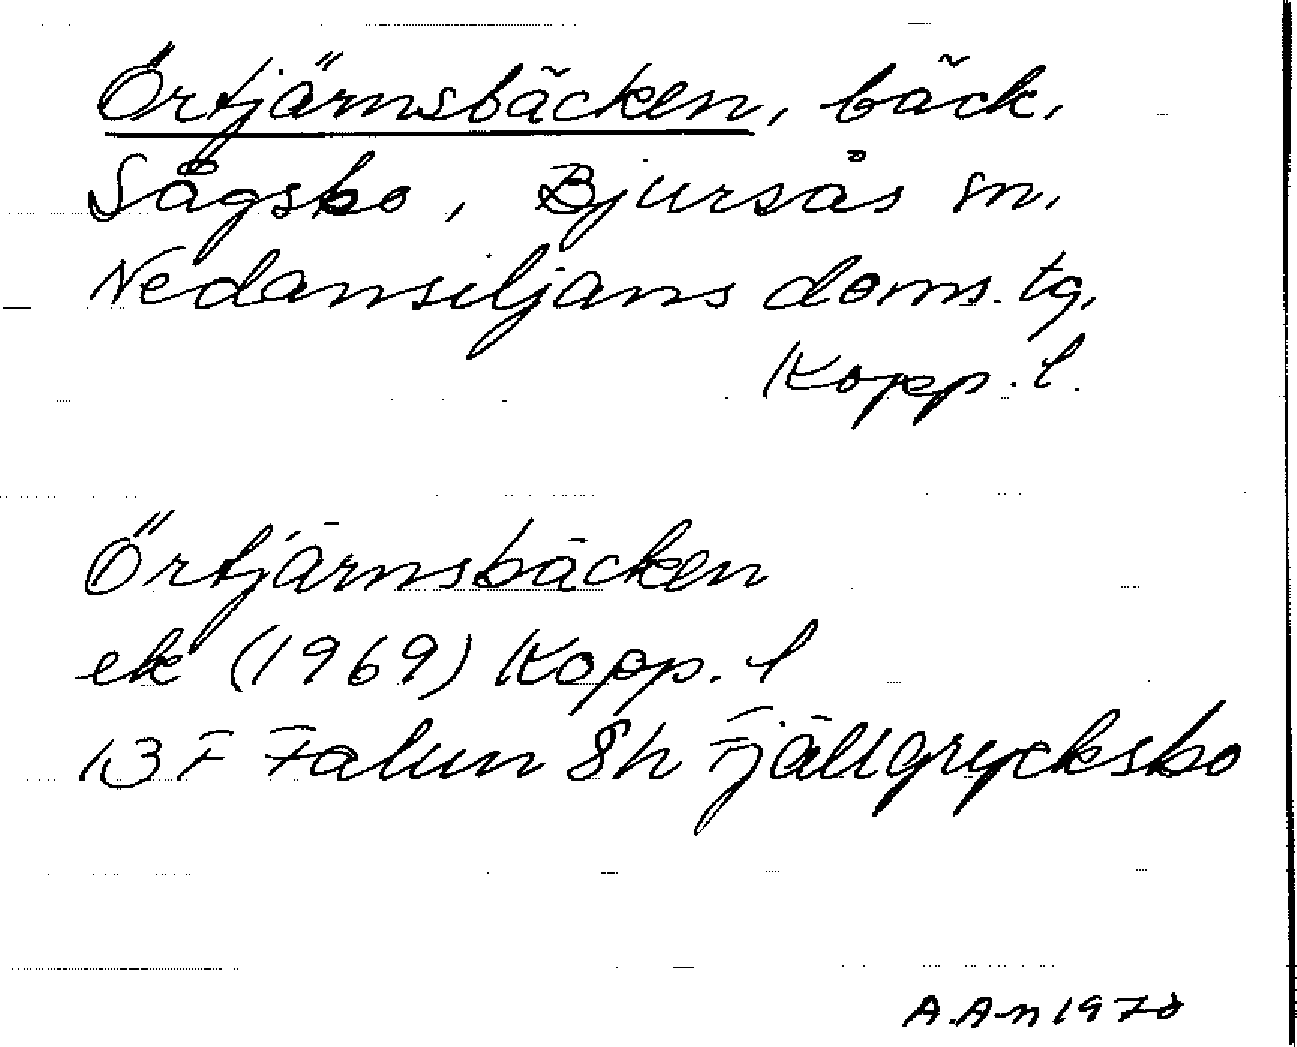 Örtjärnsbäcken, bäck,
Sågsbo, Bjursås sn,
Nedansiljans doms. tg,
Kopp. l.
Örtjärnsbäcken
ek (1969) Kopp. l
13F Falun 8h Fjällgrycksbo
A.A-n 1970